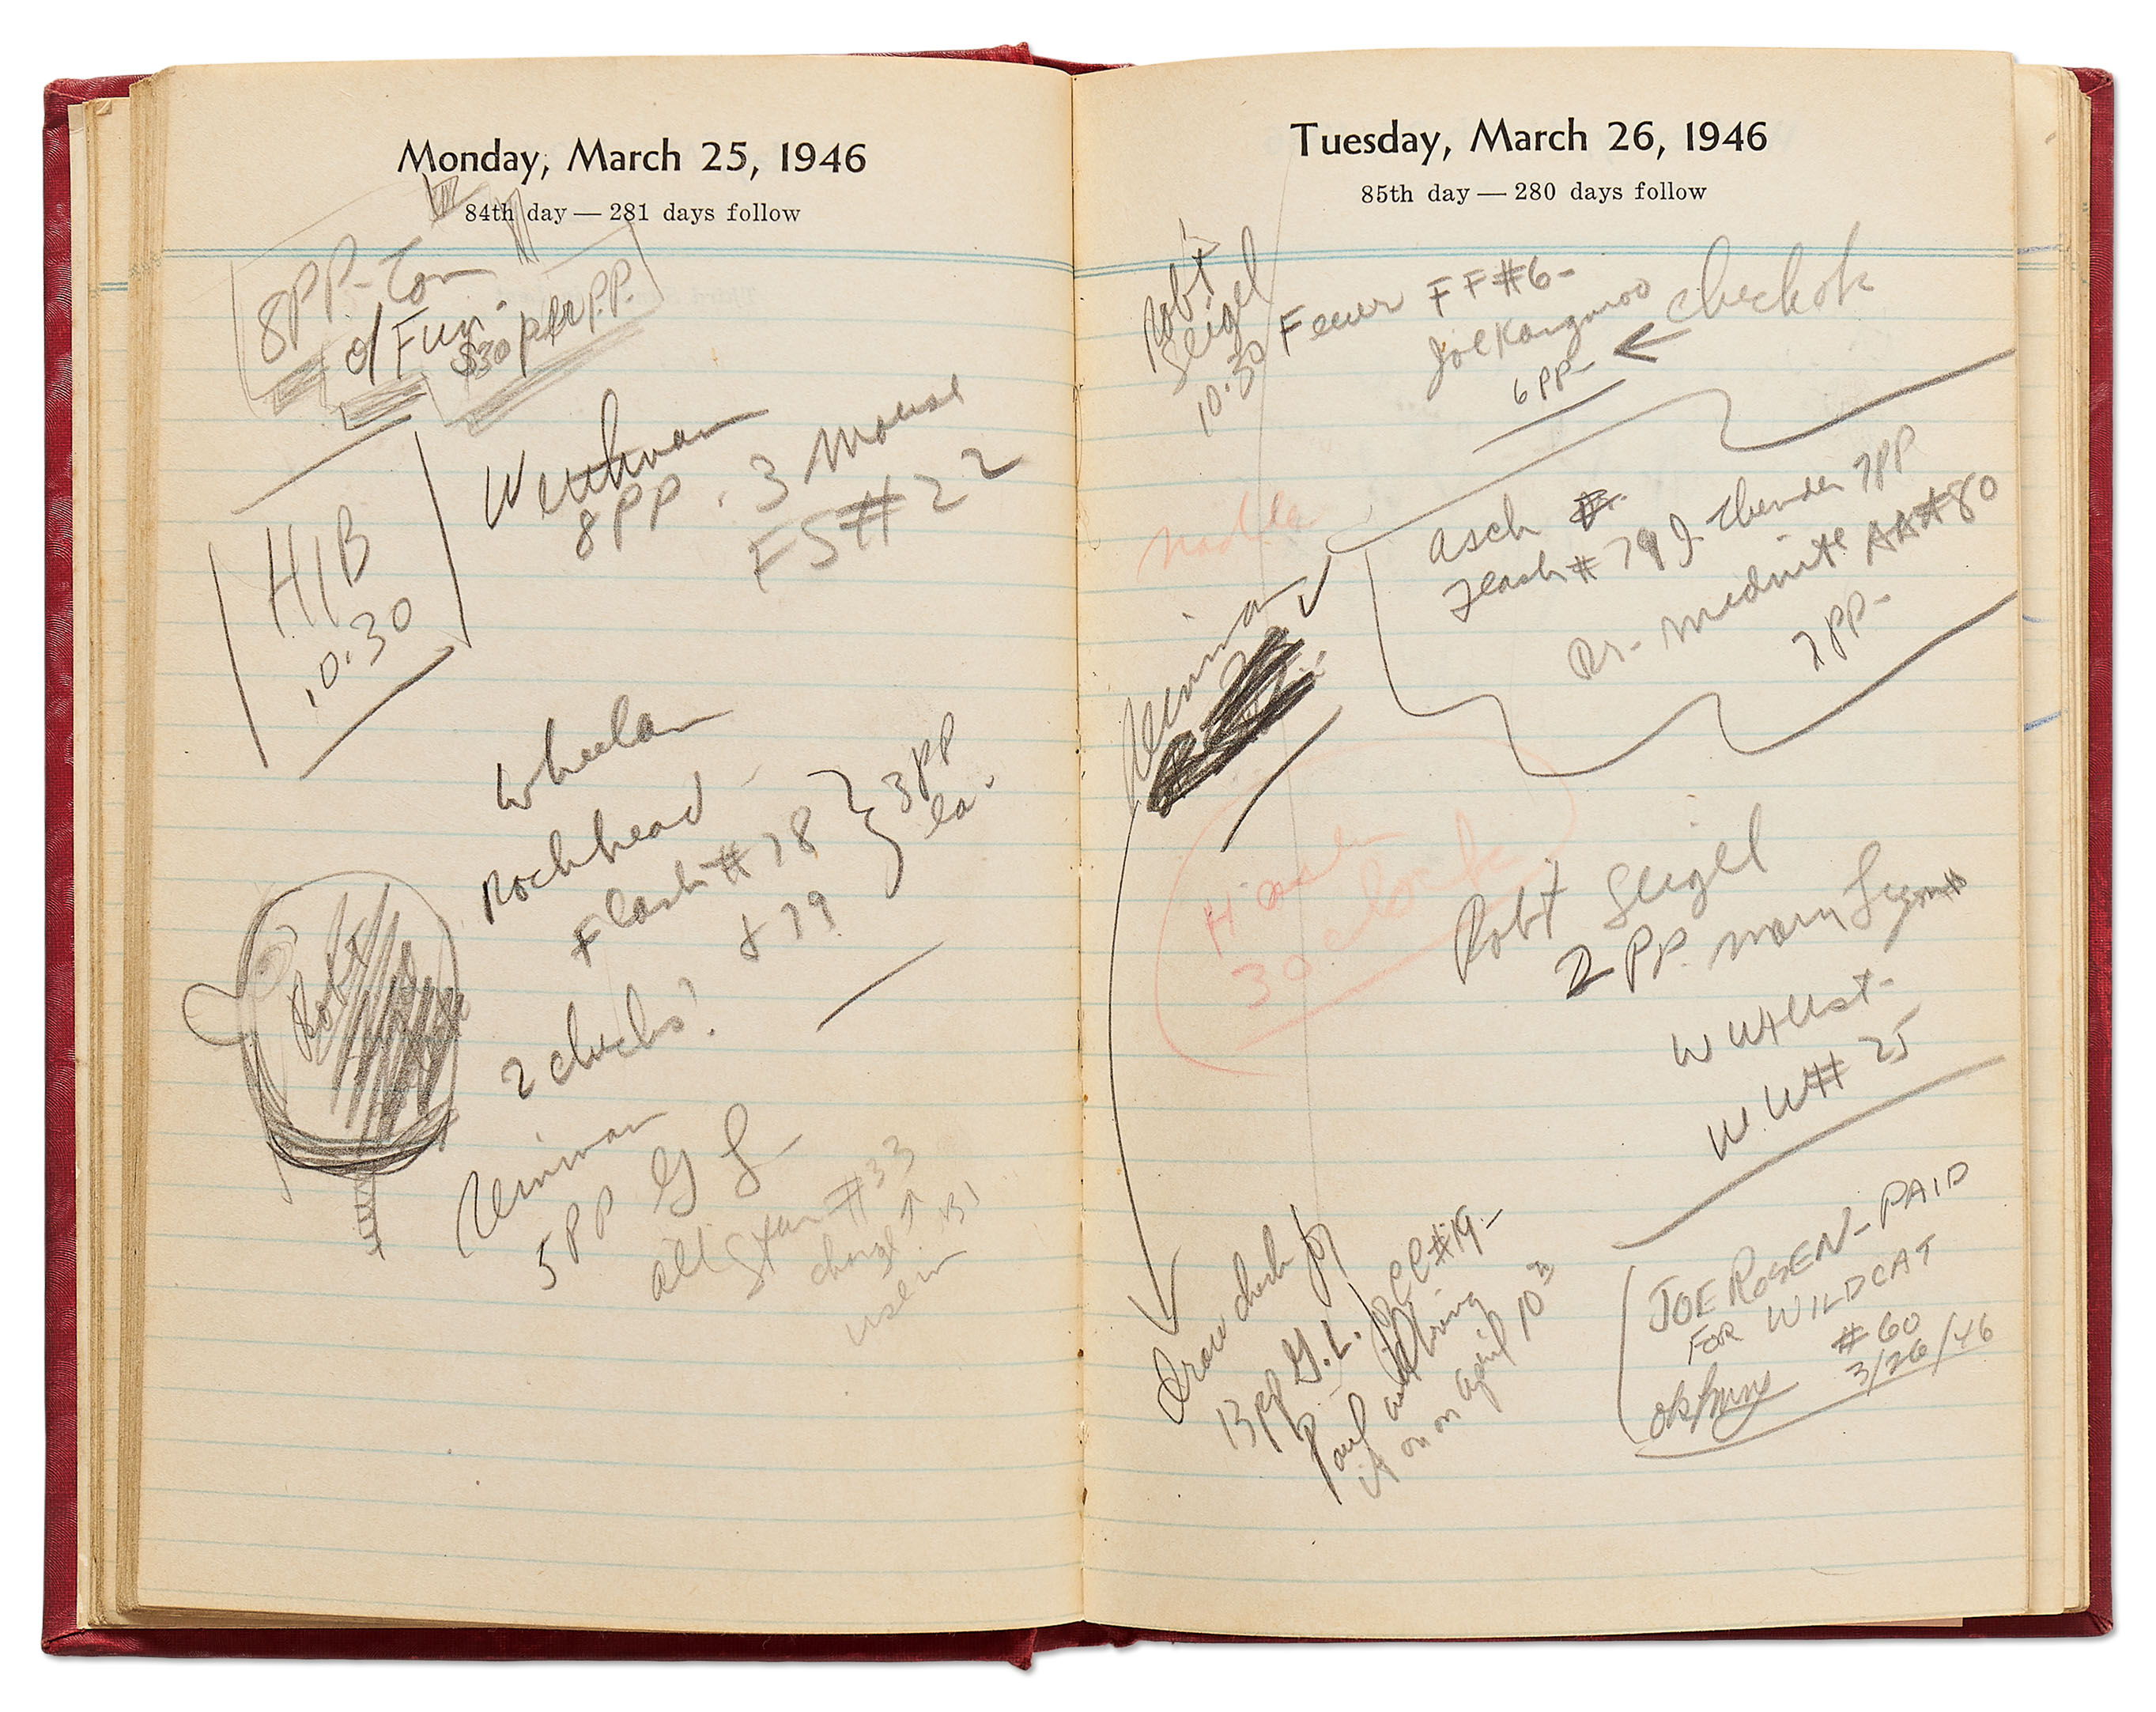 Monday, March 25, 1946
84th day — 281 days follow
8PP- Ton
o/ Fun-
$30 per PP.
8PP. 3 Mouse
FS#22
HIB
10.30
Wheelan
Rockhead -
Flash #78
& 79
3PP
ea.
2 checks?
Robt
5PP G L
All Star #33
change
use in
Tuesday, March 26, 1946
85th day — 280 days follow
Robt
Seigel
10.30
Feuer FF#6-
Joe Kangaroo
6PP-
← check ok
Asch
Flash #79 J. Thunder 7PP
Dr. Midnite AA#80
7PP-
30
Robt Seigel
2 PP. Mary
W W#25
Draw check for
13PP G.L. CC#19-
Paul will bring
it on April 10th
JOE ROSEN-PAID
FOR WILDCAT
#60
3/26/46
ok